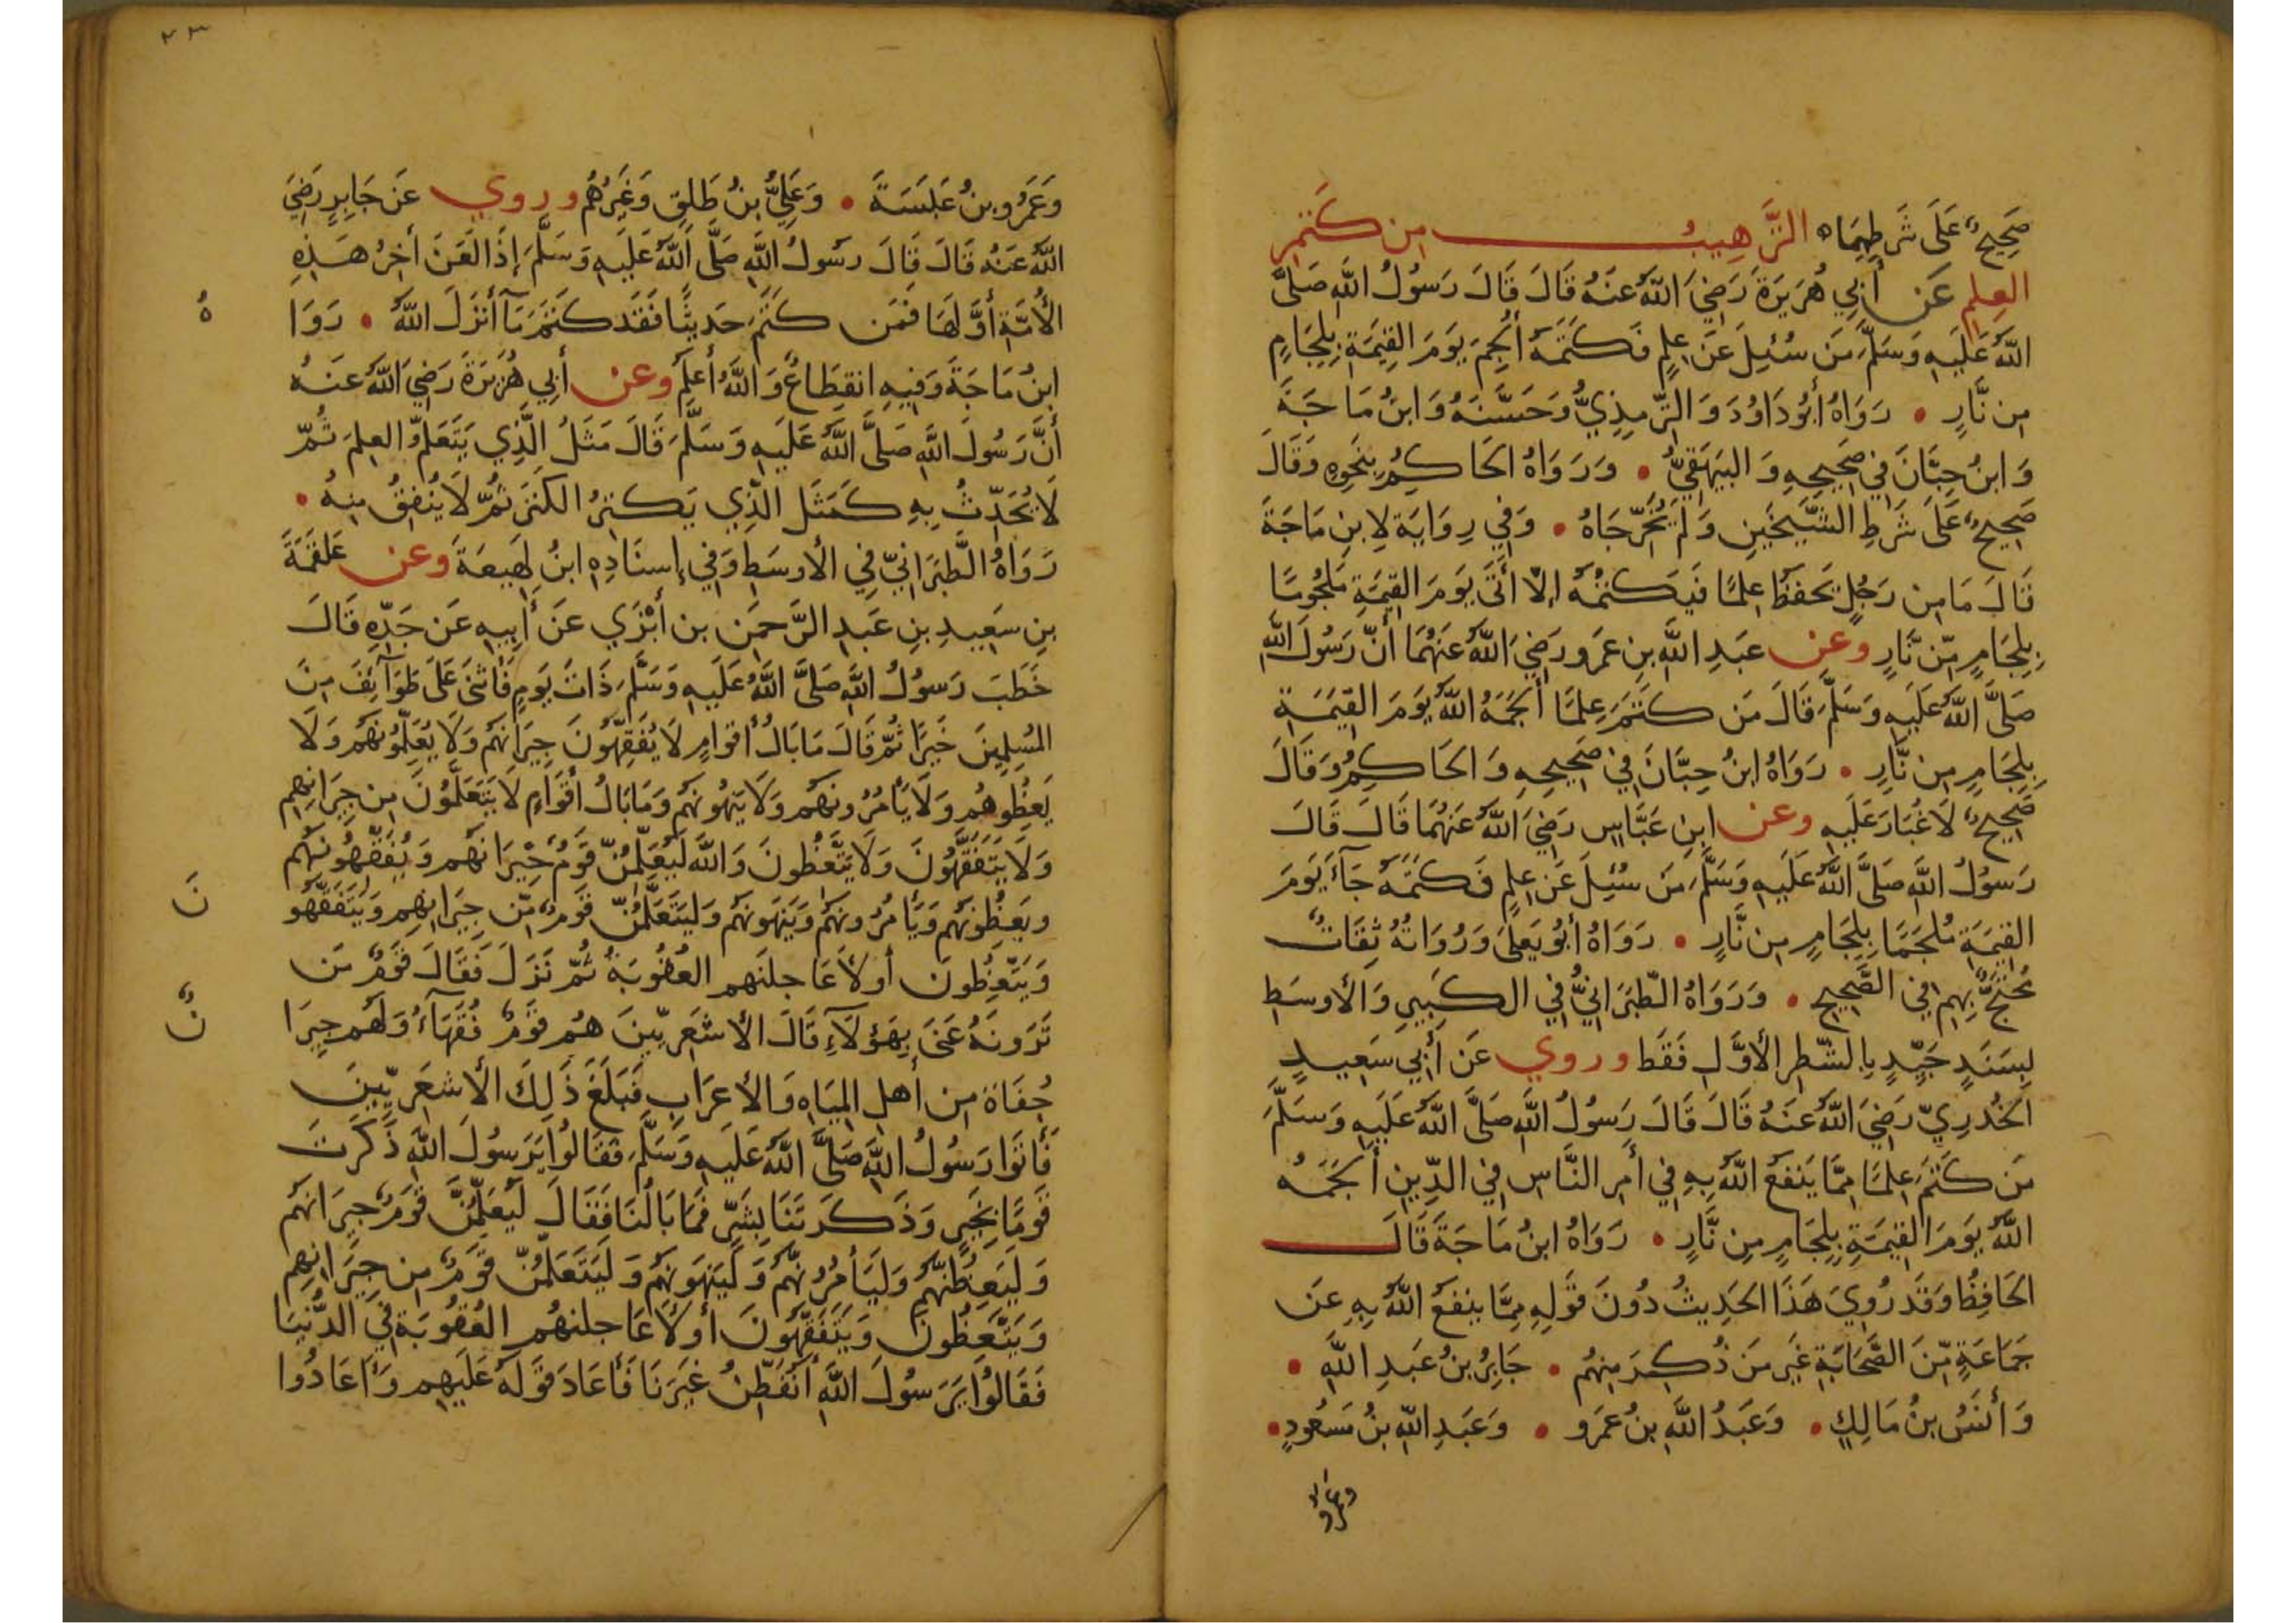 صَحِيحٌ عَلَى شَرطِهِمَا ه التَّرهِيبُ مِن كَتمِ
العِلمِ عَن أَبِي هُرَيرَةَ رَضِيَ اللَّهُ عَنهُ قَالَ قَالَ رَسُولُ اللَّهِ صَلَّى
اللَّهُ عَلَيهِ وَسَلَّمَ مَن سُئِلَ عَن عِلمٍ فَكَتَمَهُ أُلجِمَ يَومَ القِيمَةِ بِلِجَامٍ
مِن نَّارٍ • رَوَاهُ أَبُو دَاوُدَ وَ التِّرمِذِيُّ وَحَسَّنَهُ وَابنُ مَاجَةَ
وَابنُ حِبَّانَ فِي صَحِيحِهِ وَ البَيهَقِيُّ • وَرَوَاهُ الحَاكِمُ بِنَحوِهِ وَقَالَ
صَحِيحٌ عَلَى شَرطِ الشَّيخَينِ وَلَم يُخَرِّجَاهُ • وَفِي رِوَايَةٍ لِابنِ مَاجَةَ
قَالَ مَا مِن رَجُلٍ يَحفَظُ عِلمًا فَيَكتُمُهُ إِلَّا أَتَى يَومَ القِيمَةِ مَلجُومًا
بِلِجَامٍ مِّن نَّارٍ وعن عَبدِ اللَّهِ بنِ عَمرو رَضِيَ اللَّهُ عَنهُمَا أَنَّ رَسُولَ اللَّهِ
صَلَّى اللَّهُ عَلَيهِ وَسَلَّمَ قَالَ مَن كَتَمَ عِلمًا أَلجَمَهُ اللَّهُ يَومَ القِيمَةِ
بِلِجَامٍ مِن نَّارٍ • رَوَاهُ ابنُ حِبَّانَ فِي صَحِيحِهِ وَ الحَاكِمُ وَقَالَ
صَحِيحٌ لَا غُبَارَ عَلَيهِ وعن ابنِ عَبَّاسٍ رَضِيَ اللَّهُ عَنهُمَا قَالَ قَالَ
رَسُولُ اللَّهِ صَلَّى اللَّهُ عَلَيهِ وَسَلَّمَ مَن سُئِلَ عَن عِلمٍ فَكَتَمَهُ جَآءَ يَومَ
القِيمَةِ مُلجَمًا بِلِجَامٍ مِن نَّارٍ • رَوَاهُ أَبُو يَعلَى وَرُوَاتُهُ ثِقَاتٌ
مُحتَجٌّ بِهِم فِي الصَّحِيحِ • وَرَوَاهُ الطَّبَرَانِيُّ فِي الكَبِيرِ وَالأَوسَطِ
بِسَنَدٍ جَيِّدٍ بِالشَّطرِ الأَوَّلِ فَقَط وروي عَن أَبِي سَعِيدٍ
الخُدرِيِّ رَضِيَ اللَّهُ عَنهُ قَالَ قَالَ رَسُولُ اللَّهِ صَلَّى اللَّهُ عَلَيهِ وَسَلَّمَ
مَن كَتَمَ عِلمًا مِمَّا يَنفَعُ اللَّهُ بِهِ فِي أَمرِ النَّاسِ فِي الدِّينِ أَلجَمَهُ
اللَّهُ يَومَ القِيمَةِ بِلِجَامٍ مِن نَّارٍ • رَوَاهُ ابنُ مَاجَةَ قَالَ
الحَافِظُ وَقَد رُوِيَ هَذَا الحَدِيثُ دُونَ قَولِهِ مِمَّا يَنفَعُ اللَّهُ بِهِ عَن
جَمَاعَةٍ مِّنَ الصَّحَابَةِ غَيرِ مَن ذُكِرَ مِنهُم • جَابِرُ بنُ عَبدِ اللَّهِ •
وَأَنَسُ بنُ مَالِكٍ • وَعَبدُ اللَّهِ بنُ عَمرو • وَعَبدِ اللَّهِ بنُ مَسعُودٍ •
وعمرو
٢٣
وَعَمرُو بنُ عَبَسَةَ • وَعَلِيُّ بنُ طَلِقٍ وَغَيرُهُم وروي عَن جَابِرٍ رَضِيَ
اللَّهُ عَنهُ قَالَ قَالَ رَسُولُ اللَّهِ صَلَّى اللَّهُ عَلَيهِ وَسَلَّمَ إِذَا لَعَنَ أَخِرُ هَذِهِ
الأُمَّةِ أَوَّلَهَا فَمَن كَتَمَ حَدِيثًا فَقَد كَتَمَ مَآ أَنزَلَ اللَّهُ • رَوَا
هُ
ابنُ مَاجَةَ وَفِيهِ انقِطَاعٌ وَاللَّهُ أَعلَمُ وعن أَبِي هُرَيرَةَ رَضِيَ اللَّهُ عَنهُ
أَنَّ رَسُولَ اللَّهِ صَلَّى اللَّهُ عَلَيهِ وَسَلَّمَ قَالَ مَثَلُ الَّذِي يَتَعَلَّمُ العِلمَ ثُمَّ
لَا يُحَدِّثُ بِهِ كَمَثَلِ الَّذِي يَكنِزُ الكَنزَ ثُمَّ لَا يُنفِقُ مِنهُ •
رَوَاهُ الطَّبَرَانِيّ فِي الأَوسَطِ وَفِي إِسنَادِهِ ابنُ لَهِيعَةَ وعن عَلقَمَةَ
بنِ سَعِيدِ بنِ عَبدِ الرَّحمَنِ بن أَبْزَي عَن أَبِيهِ عَن جَدِّهِ قَالَ
خَطَبَ رَسُولُ اللَّهِ صَلَّى اللَّهُ عَلَيهِ وَسَلَّمَ ذَاتَ يَومٍ فَأَثنَى عَلَى طَوَآئِفَ مِنَ
المُسلِمِينَ خَيرًا ثُمَّ قَالَ مَا بَالُ أَقوَامٍ لَا يُفَقِّهُونَ جِيرَانَهُم وَلَا يُعَلِّمُونَهُم وَلَا
يَعِظُوهُم وَلَا يَأمُرُونَهُم وَلَا يَنهَونَهُم وَمَا بَالُ أَقوَامٍ لَا يَتَعَلَّمُونَ مِن جِيرَانِهِم
وَلَا يَتَفَقَّهُونَ وَلَا يَتَّعِظُونَ وَاللَّهِ لَيُعَلِّمُنَّ قَومٌ جِيرَانَهُم وَيُفَقِّهُونَهُم
ويَعِظُونَهُم وَيَأمُرُونَهُم وَيَنهَونَهُم وَليَتَعَلَّمُنَّ قَومٌ مِّن جِيرَانِهِم وَيَتَفَقَّهُو
نَ
وَيَتَّعِظُونَ أَو لَأُعَاجِلَنَّهُم العُقُوبَةَ ثُمَّ نَزَلَ فَقَالَ قَومٌ مَن
تَرَونَهُ عَنَى بِهَؤُلَآءِ قَالَ الأَشعَرِيِّينَ هُم قَومٌ فُقَهَآءُ وَلَهُم جِيرَا
نٌ
جُفَاةٌ مِن أَهلِ المِيَاهِ وَالأَعرَابِ فَبَلَغَ ذَلِكَ الأَشعَرِيِّينَ
فَأَتَوا رَسُولَ اللَّهِ صَلَّى اللَّهُ عَلَيهِ وَسَلَّمَ فَقَالُوا يَرَسُولَ اللَّهِ ذَكَرتَ
قَومًا بِخَيرٍ وَذَكَرتَنَا بِشَرٍّ فَمَا بَالُنَا فَقَالَ لَيُعَلِّمَنَّ قَومٌ جِيرَانَهُم
وَلَيَعِظَنَّهُم وَلَيَأمُرُنَّهُم وَلَيَنهَونَهُم وَلَيَتَعَلَّمُنَّ قَومٌ مِن جِيرَانِهِم
وَيَتَّعِظُونَ وَيَتَفَقَّهُونَ أَو لَأُعَاجِلَنَّهُم العُقُوبَةَ فِي الدُّنيَا
فَقَالُوا يَرَسُولَ اللَّهِ أَنُفَطِّنُ غَيرَنَا فَأَعَادَ قَولَهُ عَلَيهِم وَأَعَادُوا